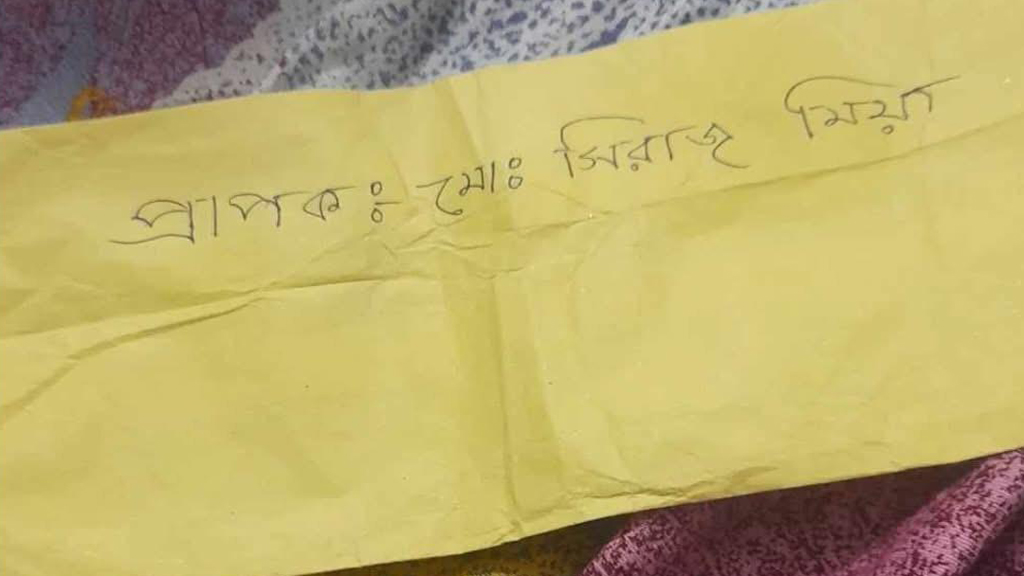 প্রাপকঃ মোঃ সিরাজ মিয়া